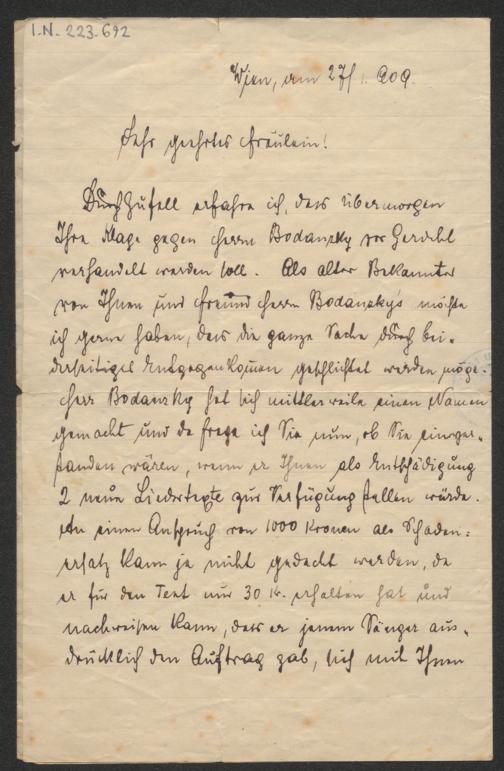 I.N. 223.692
Wien, am 27/1. 909.
Sehr geehrtes Fräulein!
Durch Zufall erfahre ich, dass übermorgen
Ihre Klage gegen Herrn Bodanzky vor Gericht
verhandelt werden soll. Als alter Bekannter
von Ihnen und Freund Herrn Bodanzky's möchte
ich gerne haben, dass die ganze Sache durch bei-
derseitiges Entgegenkommen geschlichtet werden möge.
Herr Bodanzky hat sich mittlerweile einen Namen
gemacht und da frage ich Sie nun, ob Sie einver-
standen wären, wenn er Ihnen als Entschädigung
2 neue Liedertexte zur Verfügung stellen würde.
An einen Anspruch von 1000 Kronen als Schaden-
ersatz kann ja nicht gedacht werden, da
er für den Text nur 30 Kr. erhalten hat und
nachweisen kann, dass er jenem Sänger aus-
drücklich den Auftrag gab, sich mit Ihnen